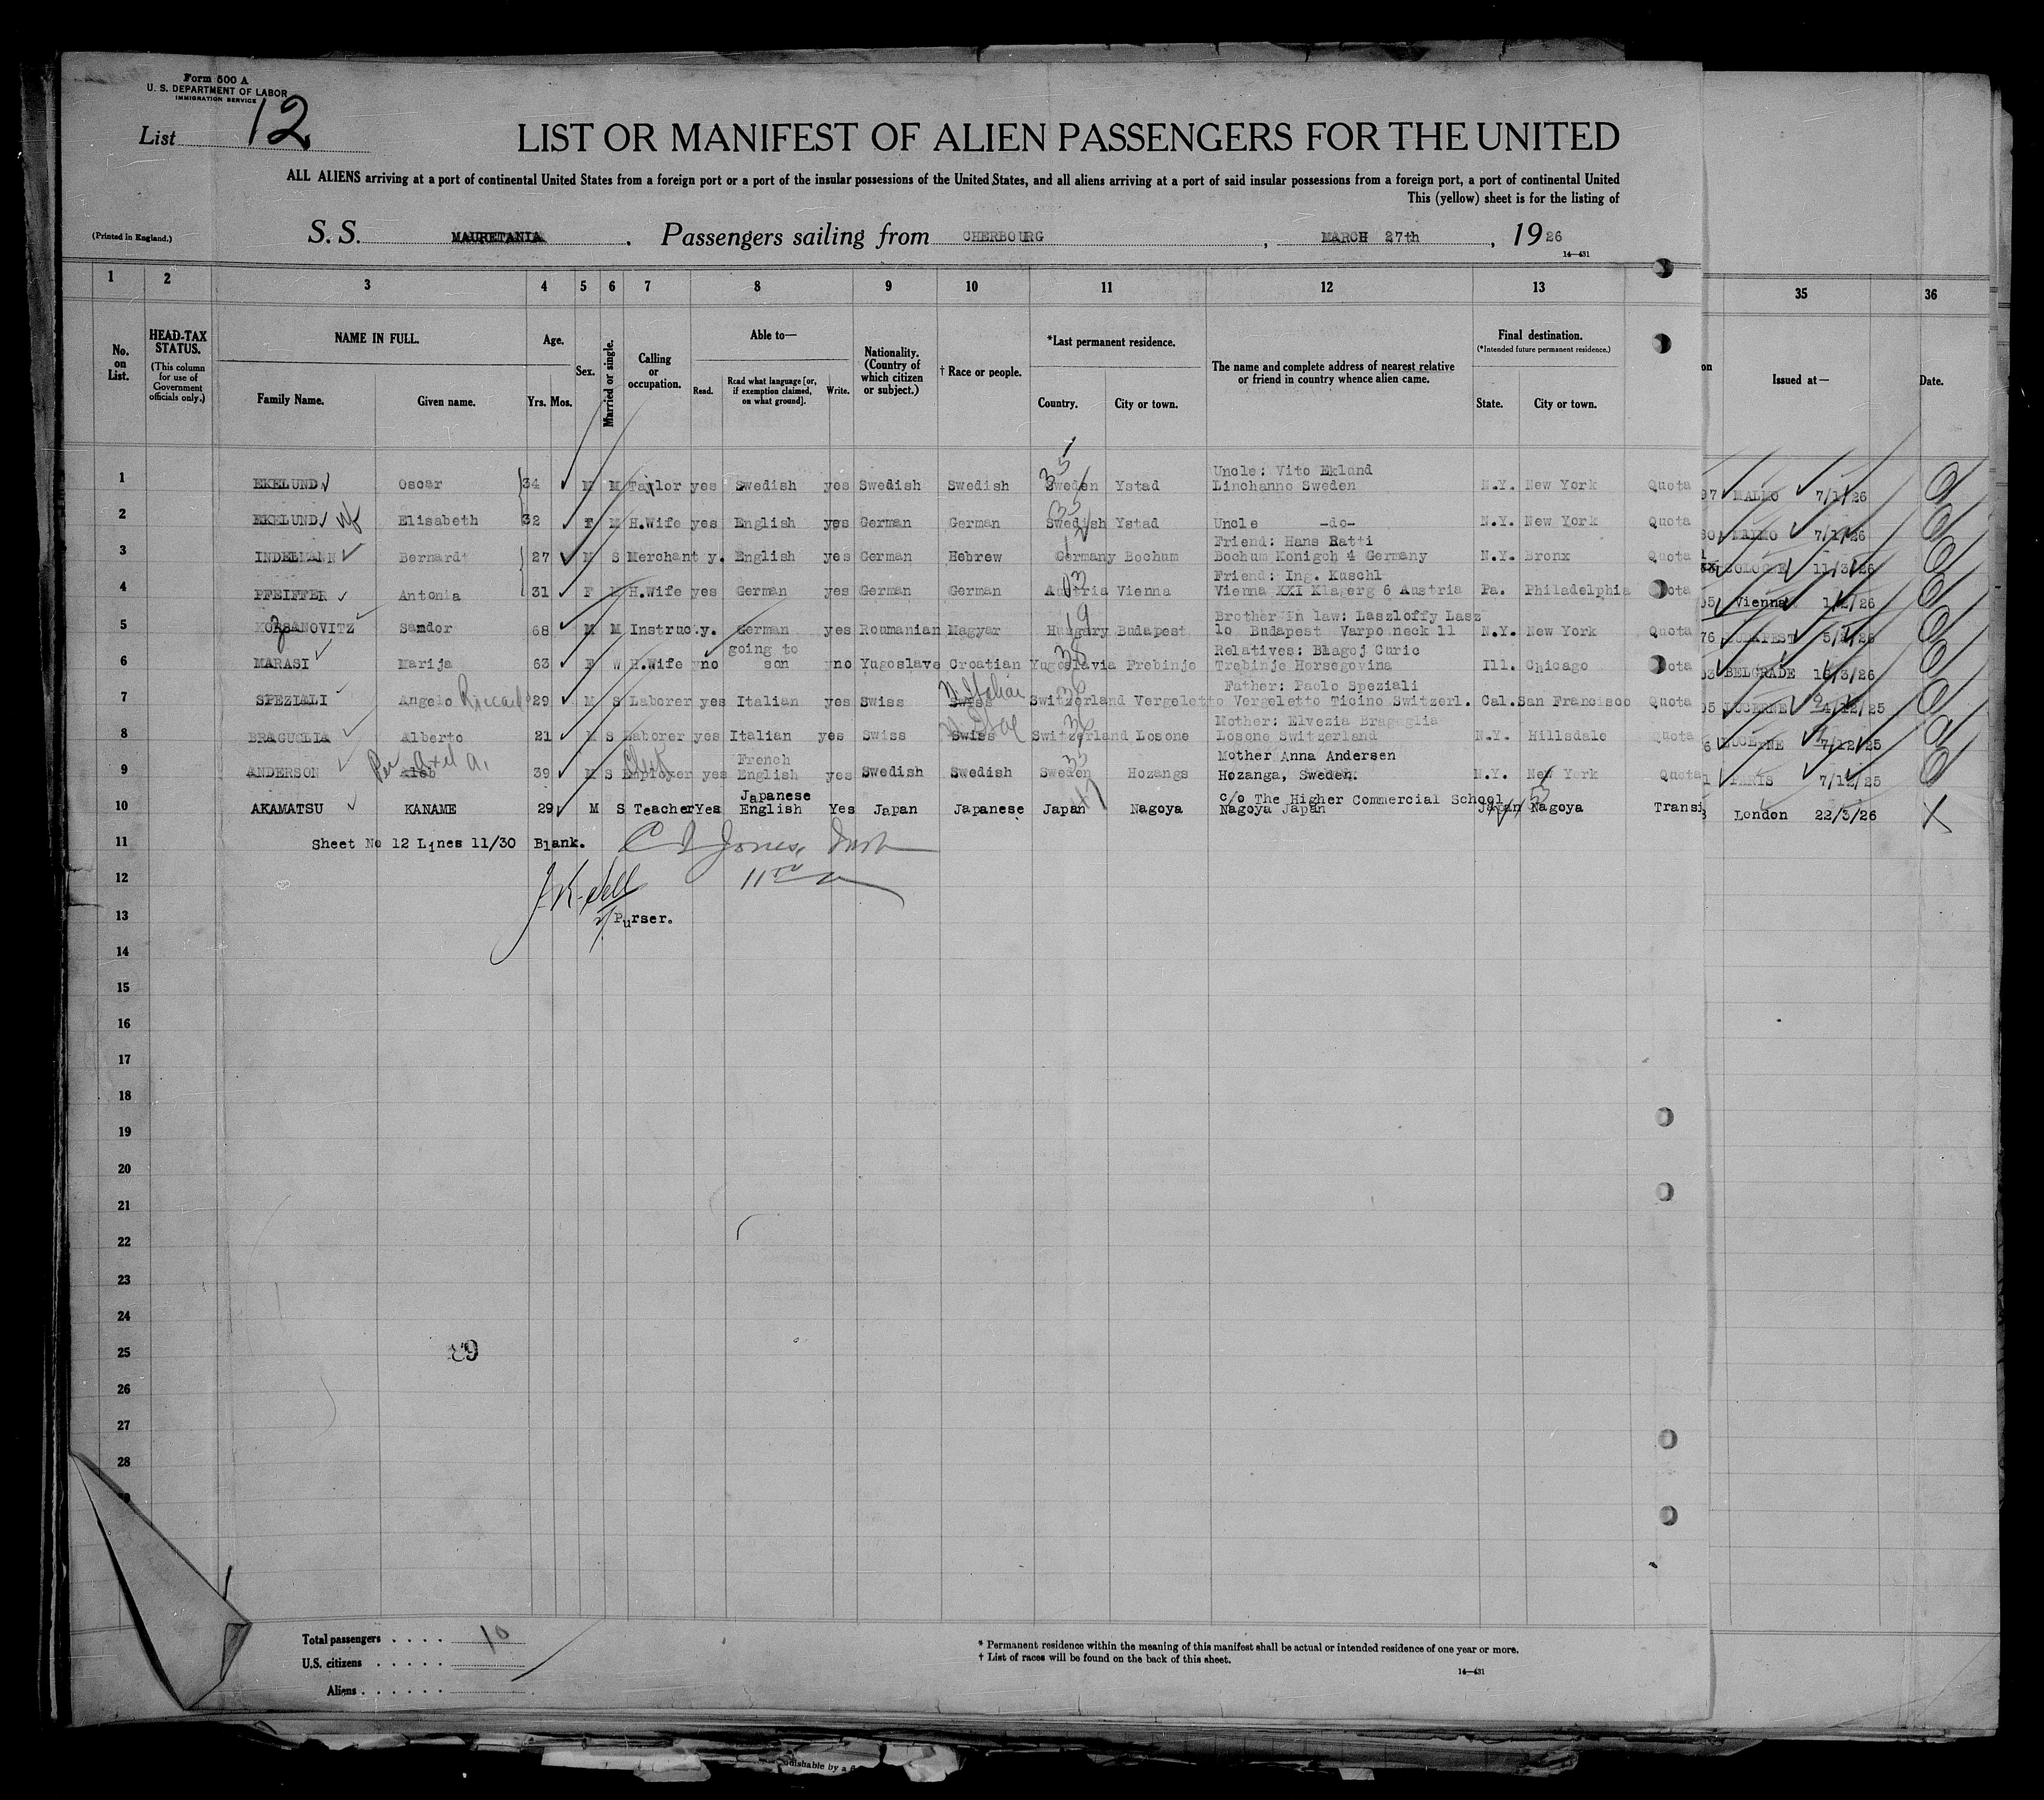 Form 500 A
U. S. DEPARTMENT OF LABOR
IMMIGRATION SERVICE
List 12
LIST OR MANIFEST OF ALIEN PASSENGERS FOR THE UNITED
ALL ALIENS arriving at a port of continental United States from a foreign port or a port of the insular possessions of the United States, and all aliens arriving at a port of said insular possessions from a foreign port, a port of continental United
This (yellow) sheet is for the listing of
(Printed in England.)
S. S. MAURETANIA, Passengers sailing from CHERBOURG, MARCH 27th, 1926
14—431
1 2 3 4 5 6 7 8 9 10 11 12 13 35 36
No. on List.
HEAD-TAX STATUS.
(This column for use of Government officials only.)
NAME IN FULL.
Family Name. Given name.
Age.
Yrs. Mos.
Sex.
Married or single.
Calling or occupation.
Able to—
Read. Read what language [or, if exemption claimed, on what ground]. Write.
Nationality. (Country of which citizen or subject.)
† Race or people.
*Last permanent residence.
Country. City or town.
The name and complete address of nearest relative or friend in country whence alien came.
Final destination.
(*Intended future permanent residence.)
State. City or town.
Issued at— Date.
Uncle: Vito Eklund
1 EKELUND Oscar 34 M M Taylor yes Swedish yes Swedish Swedish Sweden Ystad Linchanno Sweden N.Y. New York Quota 97 MALMO 7/1/26
2 EKELUND Elisabeth 32 F M H.Wife yes English yes German German Swedish Ystad Uncle -do- N.Y. New York Quota MALMO 7/1/26
Friend: Hans Ratti
3 INDELMANN Bernardt 27 M S Merchant y. English yes German Hebrew Germany Bochum Bochum Konigch 4 Germany N.Y. Bronx Quota COLOGNE 11/3/26
Friend: Ing. Kuschl
4 PFEIFFER Antonia 31 F M H.Wife yes German yes German German Austria Vienna Vienna XXI Klagerg 6 Austria Pa. Philadelphia Quota Vienna 1/2/26
Brother in law: Laszloffy Lasz
5 KORSANOVITZ Sandor 68 M M Instruc.y. German yes Roumanian Magyar Hungary Budapest lo Budapest Varponeck 11 N.Y. New York Quota 76 BUDAPEST
going to Relatives: Blagoj Curic
6 MARASI Marija 63 F W H.Wife no son no Yugoslave Croatian Yugoslavia Frebinje Trebinje Hersegovina Ill. Chicago Quota BELGRADE 16/3/26
Father: Paolo Speziali
7 SPEZIALI Angelo Riccardo 29 M S Laborer yes Italian yes Swiss Swiss N Italian Switzerland Vergeletto Vergeletto Ticino Switzerl. Cal. San Francisco Quota LUCERNE 4/12/25
Mother: Elvezia Bragaglia
8 BRAGUGLIA Alberto 21 M S Laborer yes Italian yes Swiss Swiss Switzerland Losone Losone Switzerland N.Y. Hillsdale Quota LUCERNE 7/12/25
French Mother Anna Andersen
9 ANDERSON Axel A. 39 M S Employer Clerk yes English yes Swedish Swedish Sweden Hozangs Hozanga, Sweden. N.Y. New York Quota PARIS 7/12/25
Japanese c/o The Higher Commercial School
10 AKAMATSU KANAME 29 M S Teacher Yes English Yes Japan Japanese Japan Nagoya Nagoya Japan Japan Nagoya Transi London 22/3/26
11 Sheet No 12 Lines 11/30 Blank.
12
13 Purser.
14
15
16
17
18
19
20
21
22
23
24
25
26
27
28
Total passengers . . . . 10
U.S. citizens . . . . .
Aliens . . . . . .
* Permanent residence within the meaning of this manifest shall be actual or intended residence of one year or more.
† List of races will be found on the back of this sheet.
14—431